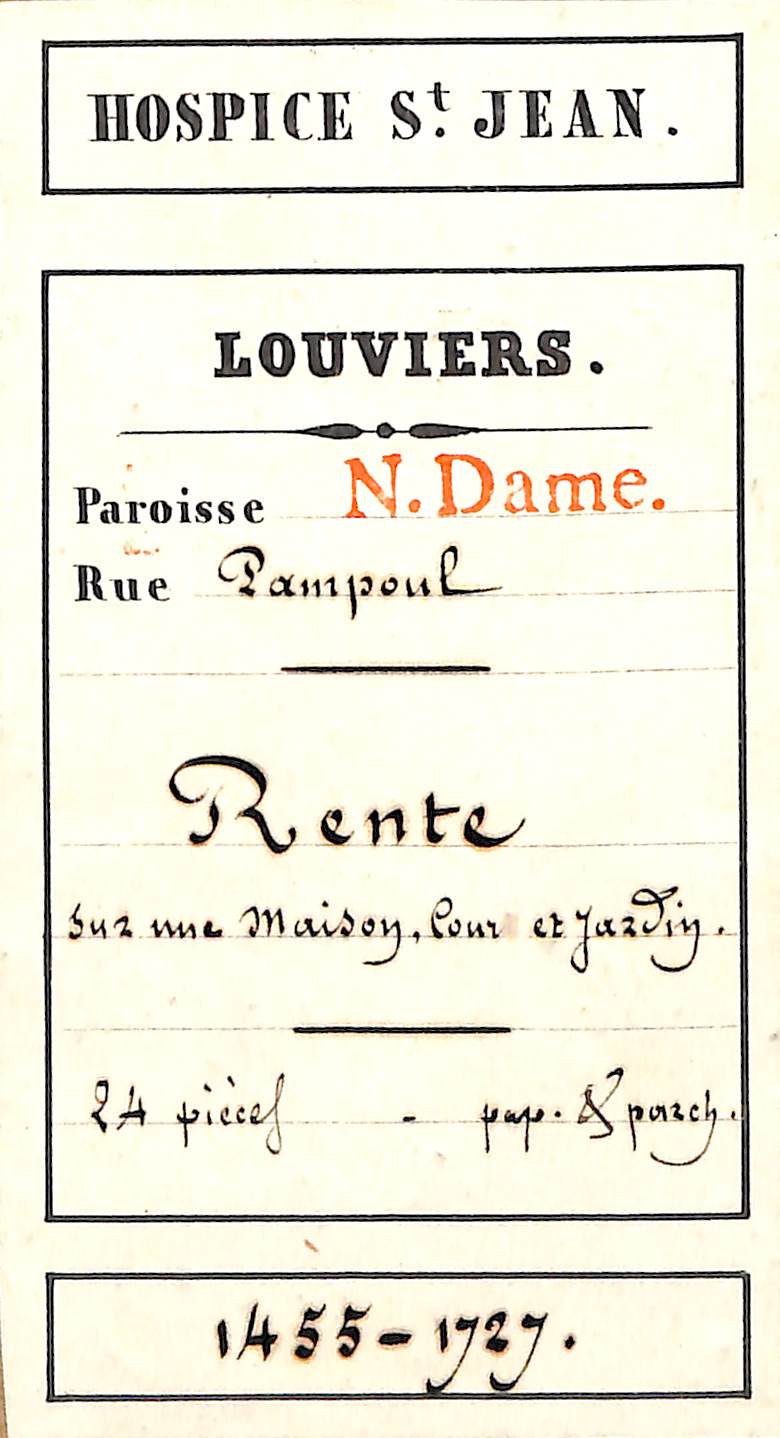 HOSPICE St. JEAN.
LOUVIERS.
Paroisse N. Dame.
Rue Pampoul
Rente
sur une Maison, Cour et Jardin.
24 pièces - pap. & parch.
1455-1727.